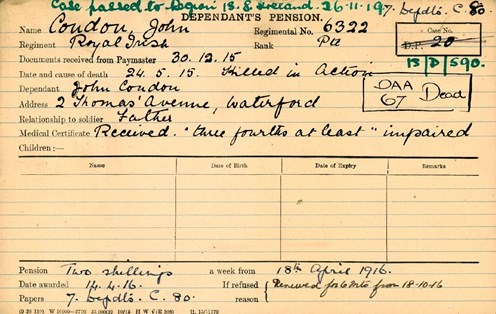 Case passed to Region 13. S. Ireland. 26-11-19 7. Depdts. C. 80.
DEPENDANT'S PENSION.
Name Condon, John Regimental No. 6322
Case No.
D.P. 20
Regiment Royal Irish Rank Pte
13/D/590.
Documents received from Paymaster 30.12.15
Date and cause of death 24.5.15. Killed in Action
Dependant John Condon
DAA
67 Dead
Address 2 Thomas' Avenue, Waterford
Relationship to soldier Father
Medical Certificate Received. "three fourths at least" impaired
Children:—
Name Date of Birth. Date of Expiry. Remarks
Pension Two shillings a week from 18th April 1916.
Date awarded 14.4.16. If refused Renewed for 6 Mts from 18-10-16
Papers 7. Depdts. C. 80. reason